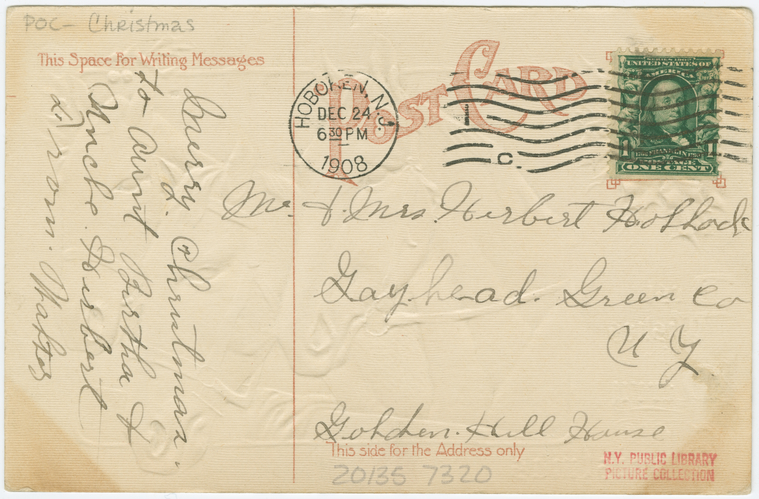 POC - Christmas
This Space for Writing Messages
POST CARD
HOBOKEN, N.J.
DEC 24
6 30 PM
1908
1
C.
SERIES 1902
UNITED STATES OF
AMERICA
FRANKLIN
1 POSTAGE 1
ONE CENT
Merry Christmas.
to Aunt Bertha &
Uncle Herbert
From. Walter
Mr. & Mrs Herbert Hollock
Gayhead. Green Co
N Y.
Golden. Hill House
This side for the Address only
20135 7320
N.Y. PUBLIC LIBRARY
PICTURE COLLECTION